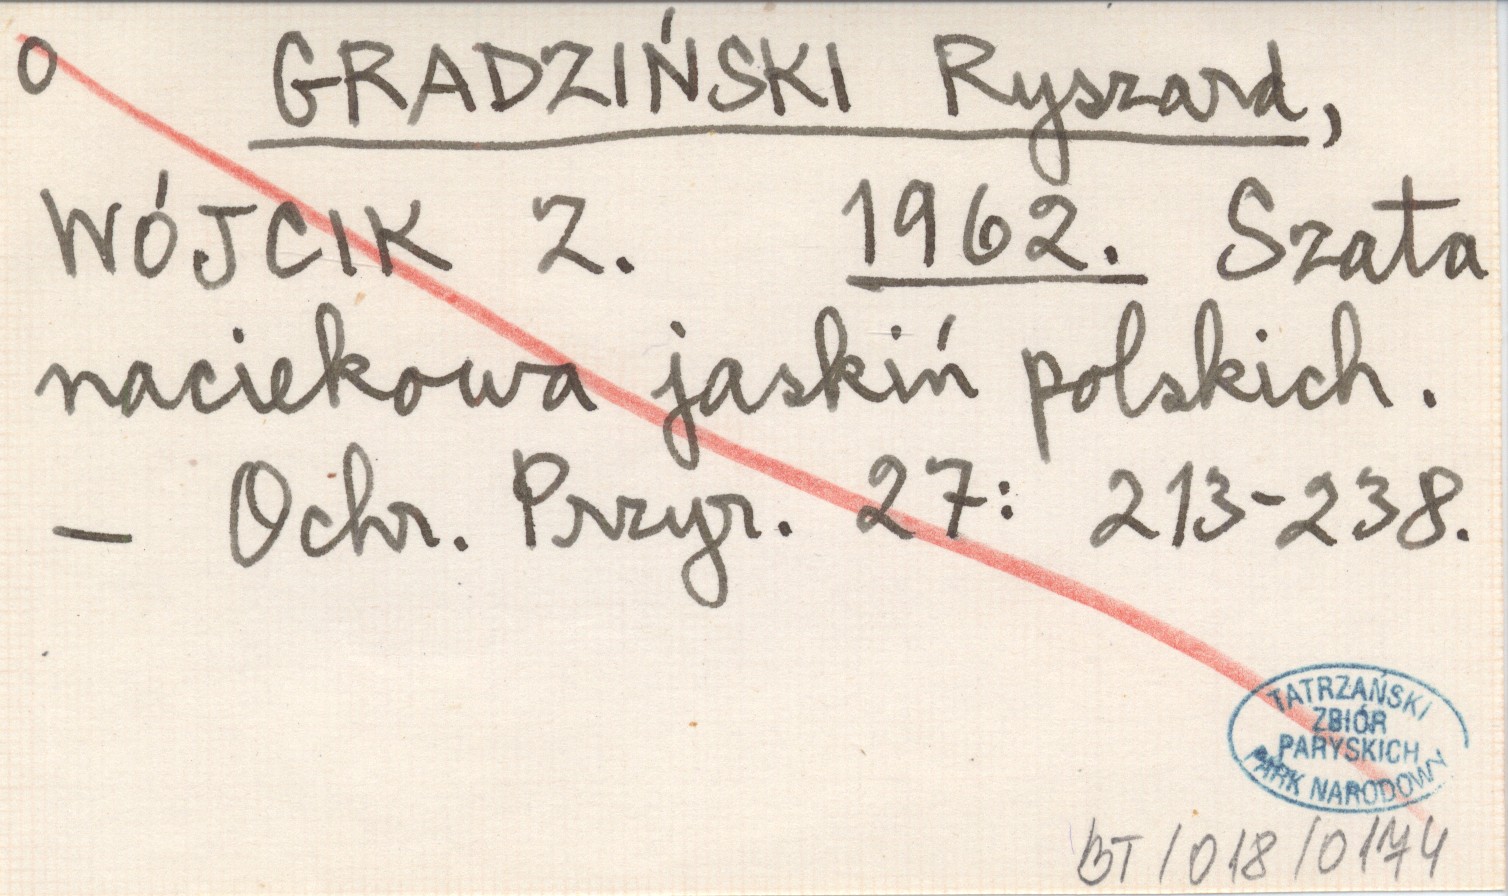 O GRADZIŃSKI Ryszard,
WÓJCIK Z. 1962. Szata
naciekowa jaskiń polskich.
— Ochr. Przyr. 27: 213-238.
TATRZAŃSKI
ZBIÓR
PARYSKICH
PARK NARODOWY
BT/018/0174